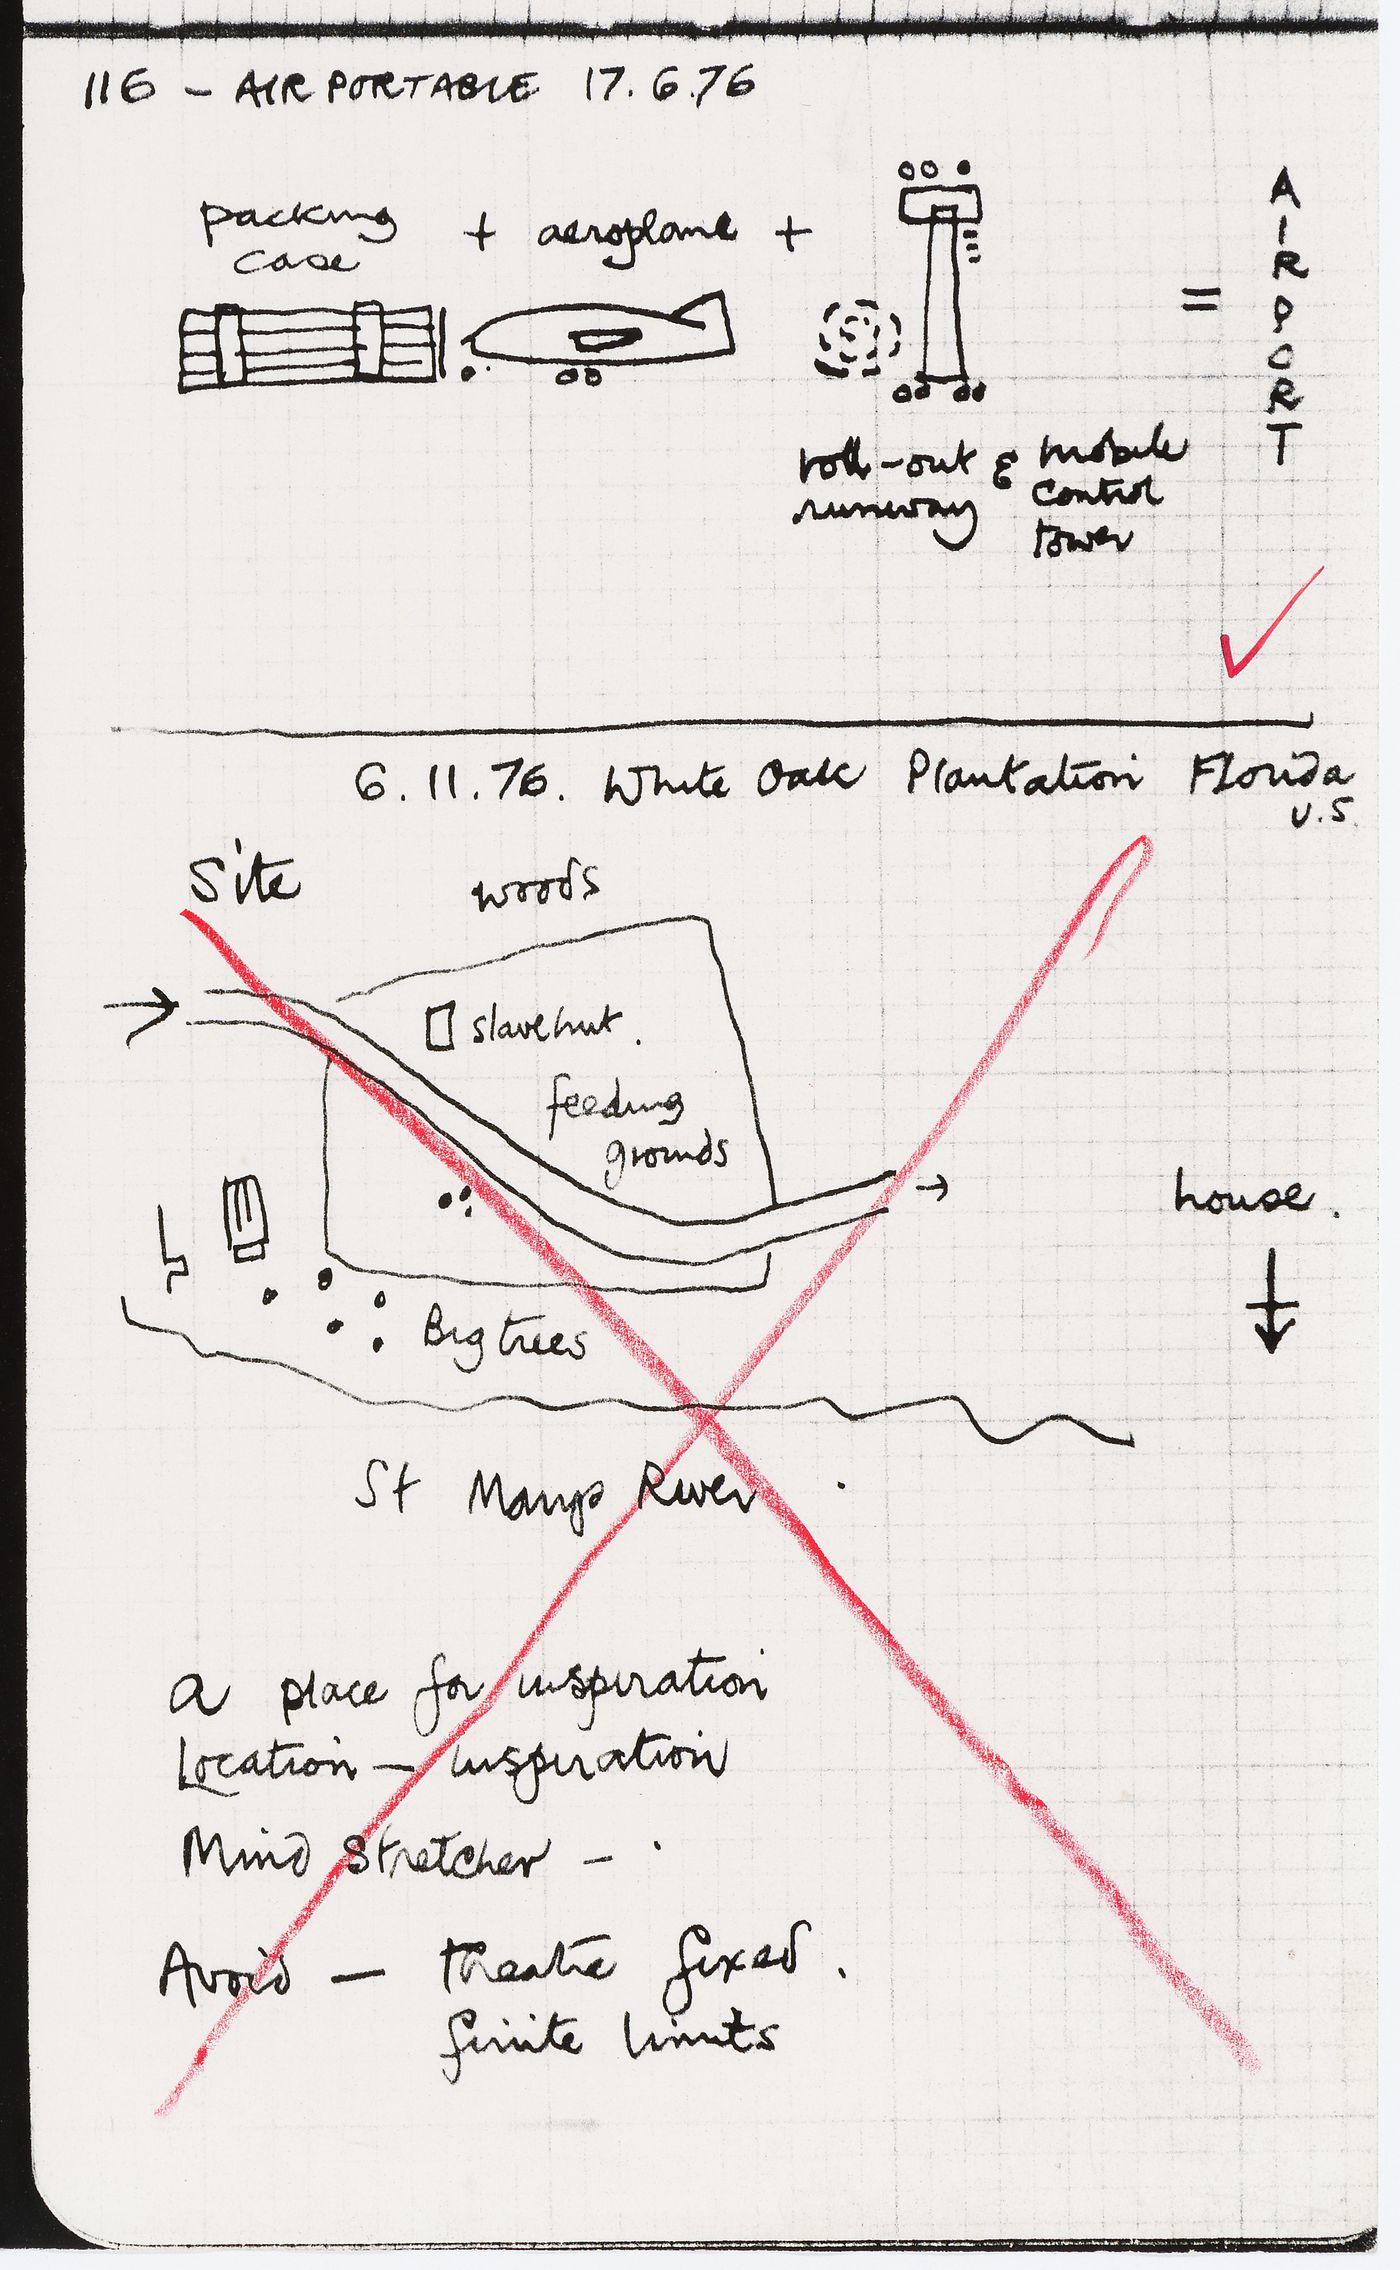 116 – AIRPORTABLE 17.6.76
packing case + aeroplane +
= AIRPORT
roll-out runway & mobile control tower
6.11.76. White Oak Plantation Florida
U.S.
Site
woods
slave hut.
feeding
grounds
house.
Big trees
St Marys River
A place for inspiration
Location – inspiration
Mind Stretcher –
Avoid – theatre fixed.
finite limits